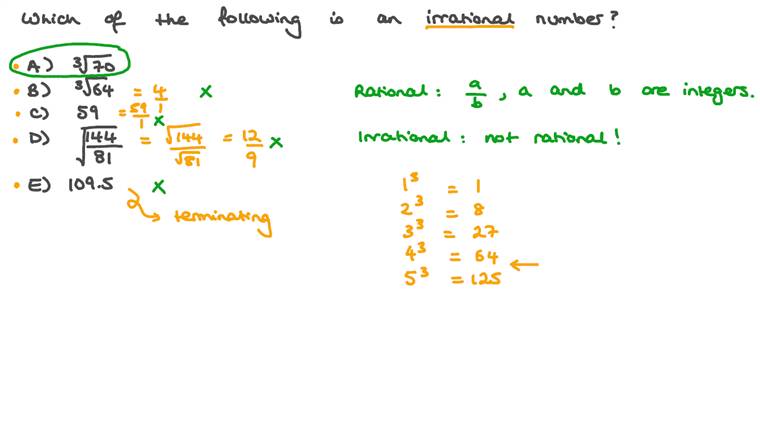 Which of the following is an irrational number?
• A) ∛70
• B) ∛64 = 4/1 ×
• C) 59 = 59/1 ×
• D) √(144/81) = √144/√81 = 12/9 ×
• E) 109.5 ×
terminating
Rational: a/b, a and b are integers.
Irrational: not rational!
1³ = 1
2³ = 8
3³ = 27
4³ = 64
5³ = 125 ←